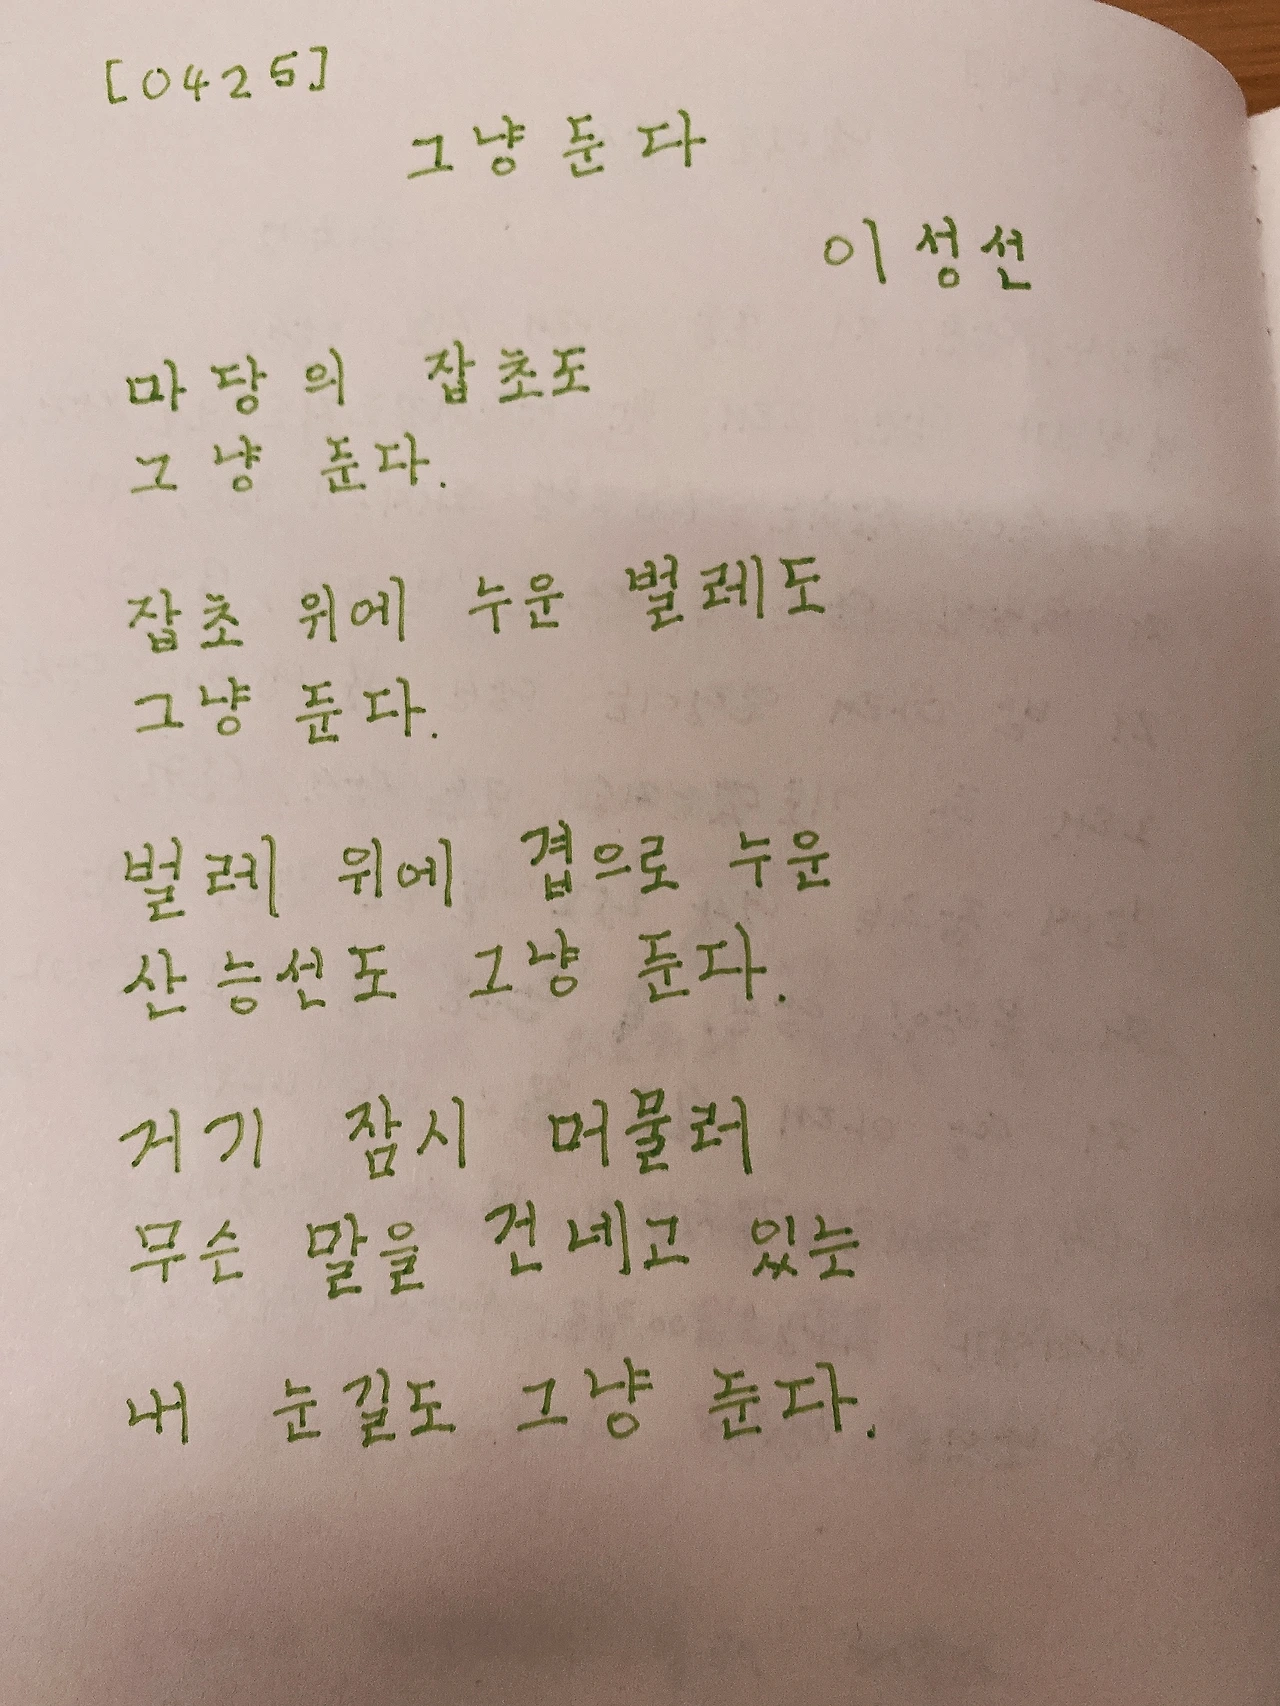 [0425]
그냥 둔다
이성선
마당의 잡초도
그냥 둔다.
잡초 위에 누운 벌레도
그냥 둔다.
벌레 위에 겹으로 누운
산 능선도 그냥 둔다.
거기 잠시 머물러
무슨 말을 건네고 있는
내 눈길도 그냥 둔다.